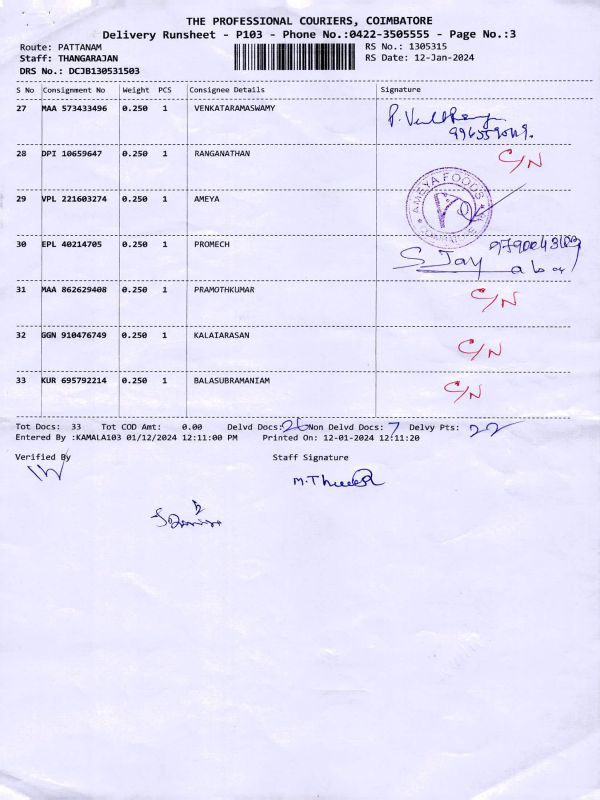 THE PROFESSIONAL COURIERS, COIMBATORE
Delivery Runsheet - P103 - Phone No.:0422-3505555 - Page No.:3
Route: PATTANAM RS No.: 1305315
Staff: THANGARAJAN RS Date: 12-Jan-2024
DRS No.: DCJB130531503
S No Consignment No Weight PCS Consignee Details Signature
27 MAA 573433496 0.250 1 VENKATARAMASWAMY
28 DPI 10659647 0.250 1 RANGANATHAN C/N
29 VPL 221603274 0.250 1 AMEYA AMEYA FOODS
30 EPL 40214705 0.250 1 PROMECH S. Jay
31 MAA 862629408 0.250 1 PRAMOTHKUMAR C/N
32 GGN 910476749 0.250 1 KALAIARASAN C/N
33 KUR 695792214 0.250 1 BALASUBRAMANIAM C/N
Tot Docs: 33 Tot COD Amt: 0.00 Delvd Docs: 26 Non Delvd Docs: 7 Delvy Pts: 22
Entered By :KAMALA103 01/12/2024 12:11:00 PM Printed On: 12-01-2024 12:11:20
Verified By Staff Signature